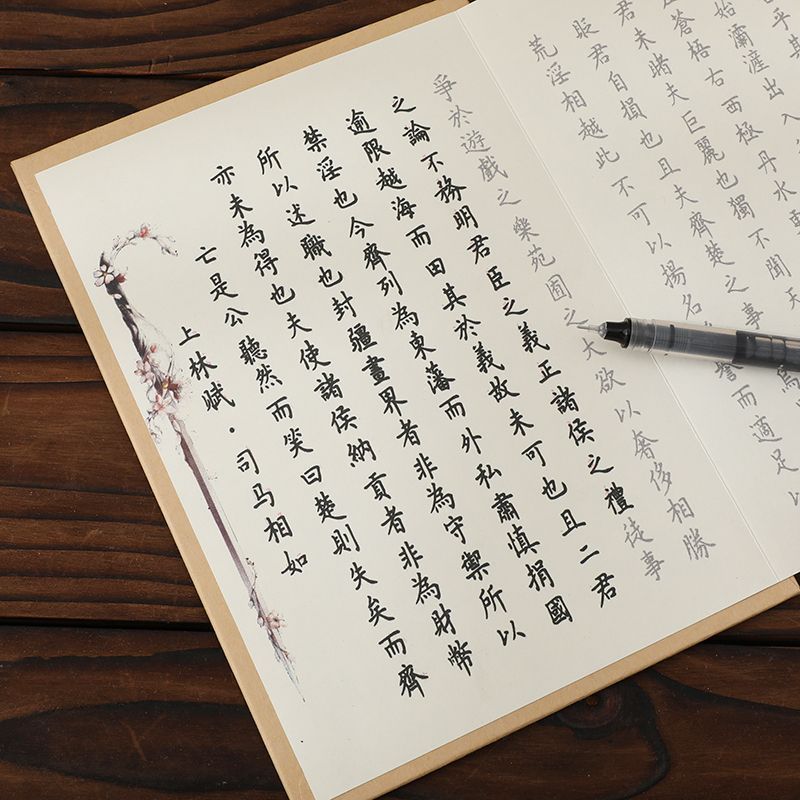 上林賦·司马相如
亡是公聽然而笑曰楚則失矣而齊
亦未為得也夫使諸侯納貢者非為財幣
所以述職也封疆畫界者非為守禦所以
禁淫也今齊列為東藩而外私肅慎捐國
逾限越海而田其於義故未可也且二君
之論不務明君臣之義正諸侯之禮徒事
爭於遊戲之樂苑囿之大欲以奢侈相勝
荒淫相越此不可以揚名譽而適足以
貶君自損也且夫齊楚之事焉
君未睹夫巨麗也獨不聞天
蒼梧右西極丹水更
始灞滻出入
乎其